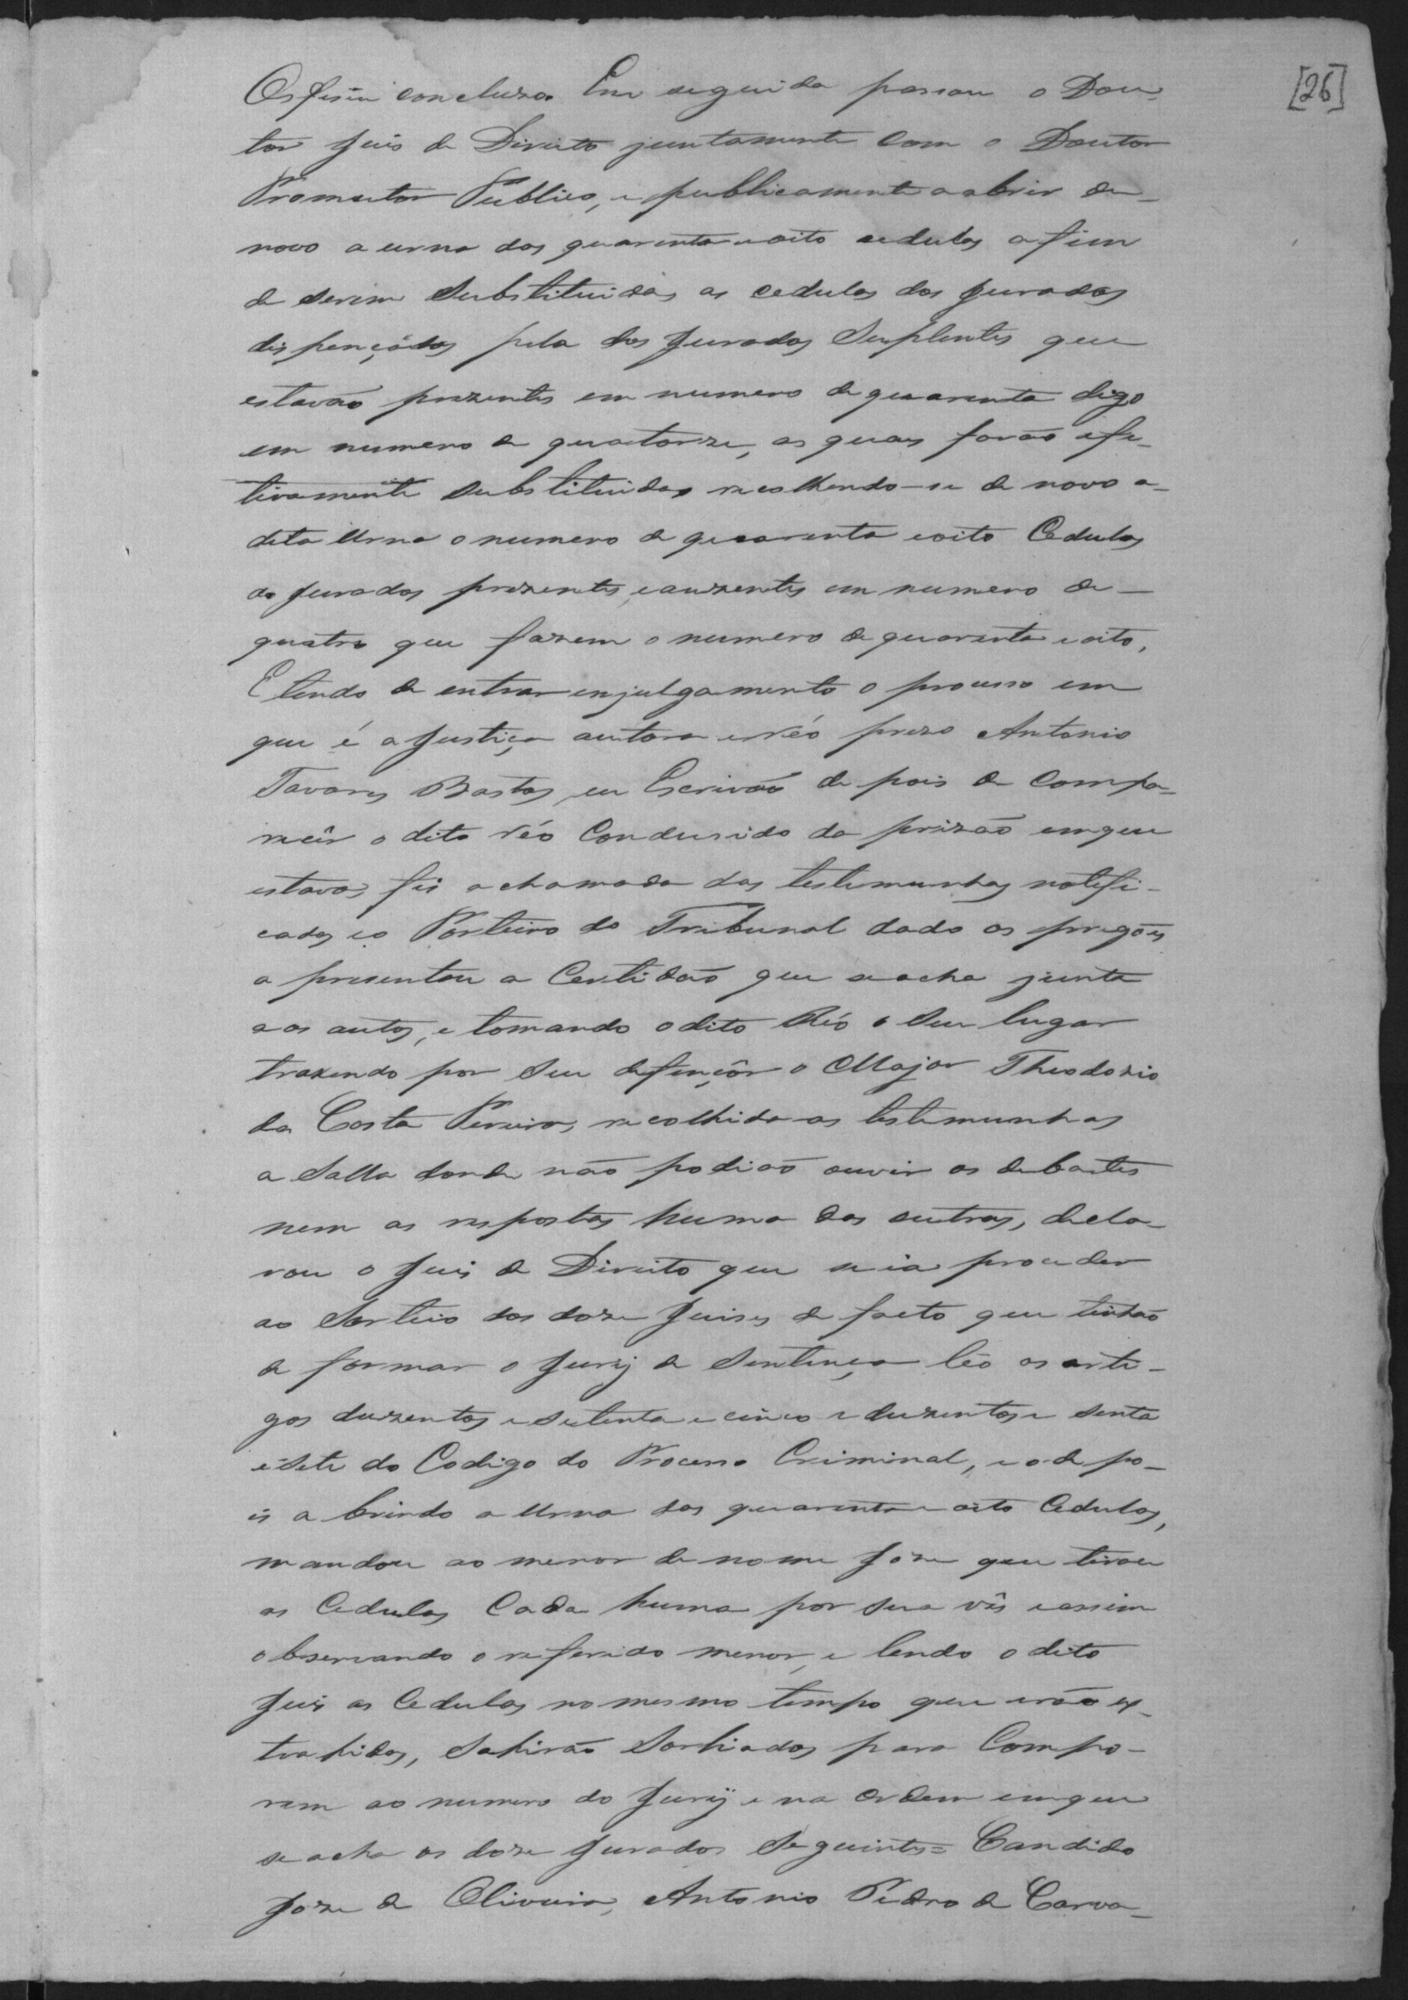 [26]
concluzo. Em seguida passou o Dou-
tor Juis de Direito juntamente com o Doutor
Promutor Publico, e publicamente a abrir de-
novo a urna das quarenta e oito cedulas afim
de serem Substituidas as cedulas dos Jurados
dispençados pela dos Jurados Suplentes que
estavão prezentes em numero de quarenta digo
em numero de quatorze, as quais forão efe-
tivamente substituidas recolhendo-se de novo a-
dita Urna o numero de quarenta e oito Cedulas
do Jurados prezentes, e auzentes em numero de-
quatro que fazem o numero de quarenta e oito,
E tendo de entrar em julgamento o processo em
que é a Justiça autora e Réo prezo Antonio
Tavares Bastos, eu Escrivão de pois de compa-
recêr o dito réo Condusido da prizão em que
estava, fis a chamada das testemunhas notifi-
cadas e o Porteiro do Tribunal dado os pregões
a presentou a Certidão que se acha junta
a os autos, e tomando o dito Réo o seu lugar
trazendo por seu defençôr o Major Theodozio
da Costa Pereira, recolhida as testemunhas
a Salla donde não podião ouvir os debates
nem as respostas huma das outras, decla-
rou o Juis de Direito que se ia proceder
ao Sorteio dos doze Juises de facto que tinhão
de formar o Jurÿ de Sentença leo os arti-
gos duzentos e setenta e cinco e duzentos e senta
e sete do Codigo do Processo Criminal, e o de po-
is a brindo a Urna das quarenta e oito Cedulas,
mandou ao menor de nome Joze que tirou
as Cedulas Cada huma por sua vês e assim
observando o referido menor, e lendo o dito
Juis as Cedulas no mesmo tempo que erão ex-
trahidas, Sahirão Sortiados para Compo-
rem ao numero do Jurÿ e na ordem em que
se acha os doze Jurados Seguintes= Candido
Joze de Oliveira, Antonio Pedro de Carva-